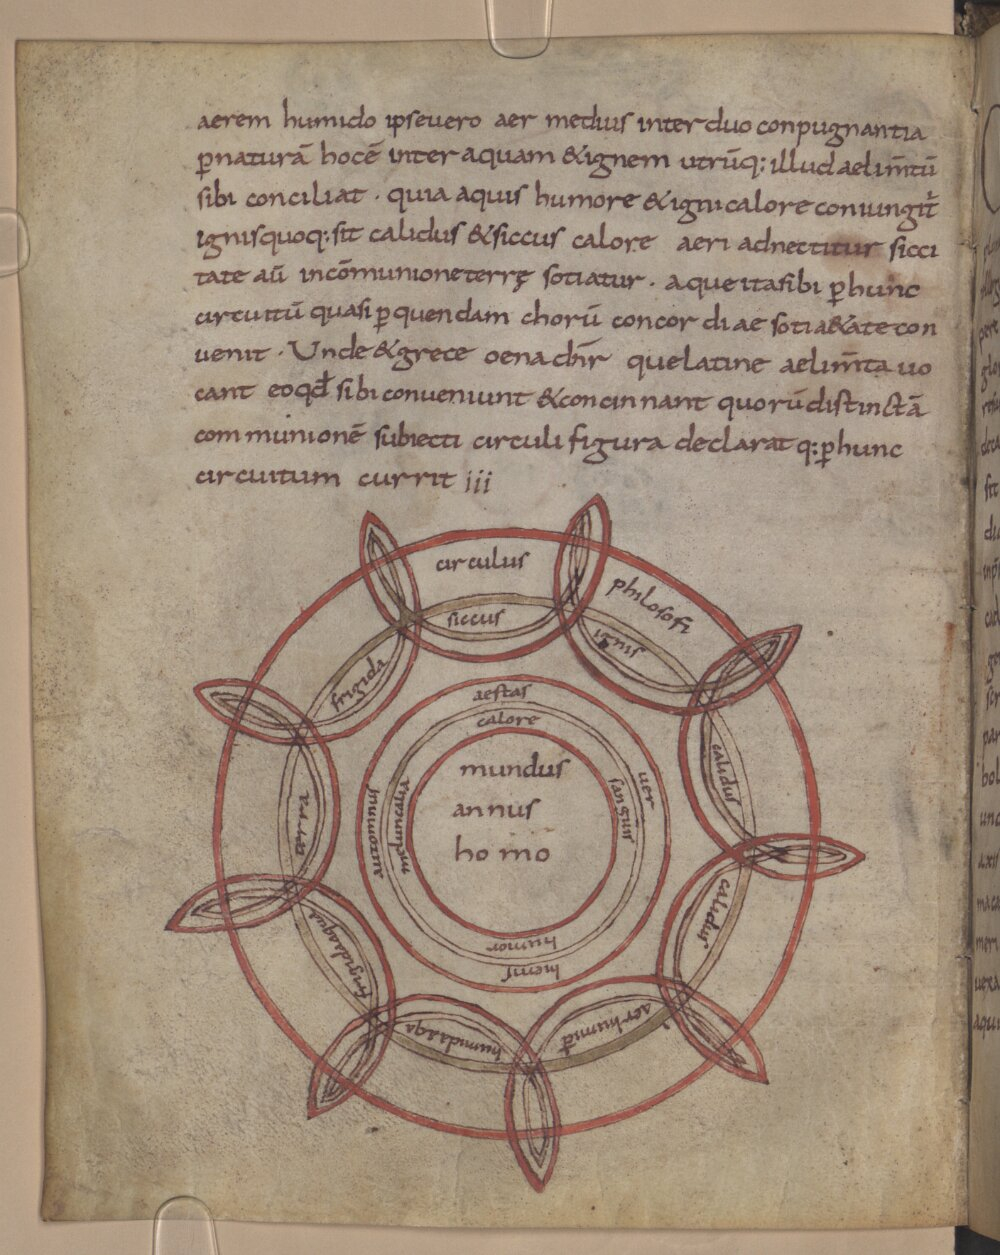 aerem humido ipsevero aer medius inter duo conpugnantia
ꝑnaturā hocē inter aquam &ignem utrūq; illud aelim̄tū
sibi conciliat · quia aquis humore &igni calore coniungit̄
ignisquoq; sit calidus &siccus calore aeri adnectitur sicci
tate aū incōmunione terrę sotiatur · aque ita sibi ꝑ hunc
circuitū quasi ꝑ quendam chorū concordiae sotia&ate con
uenit · Unde &grece oena dn̄r que latine aelim̄ta uo
cant eo qđ sibi conueniunt &concinnant quorū distinctā
communionē subiecti circuli figura declarat q; ꝑ hunc
circuitum currit iii
circulus
philosofi
siccus
ignis
frigida
calidus
calidus
aer humid
humida aqa
frigida aqua
aestas
calore
uer
sanguis
autumnus
meluncalia
humor
hiems
mundus
annus
homo